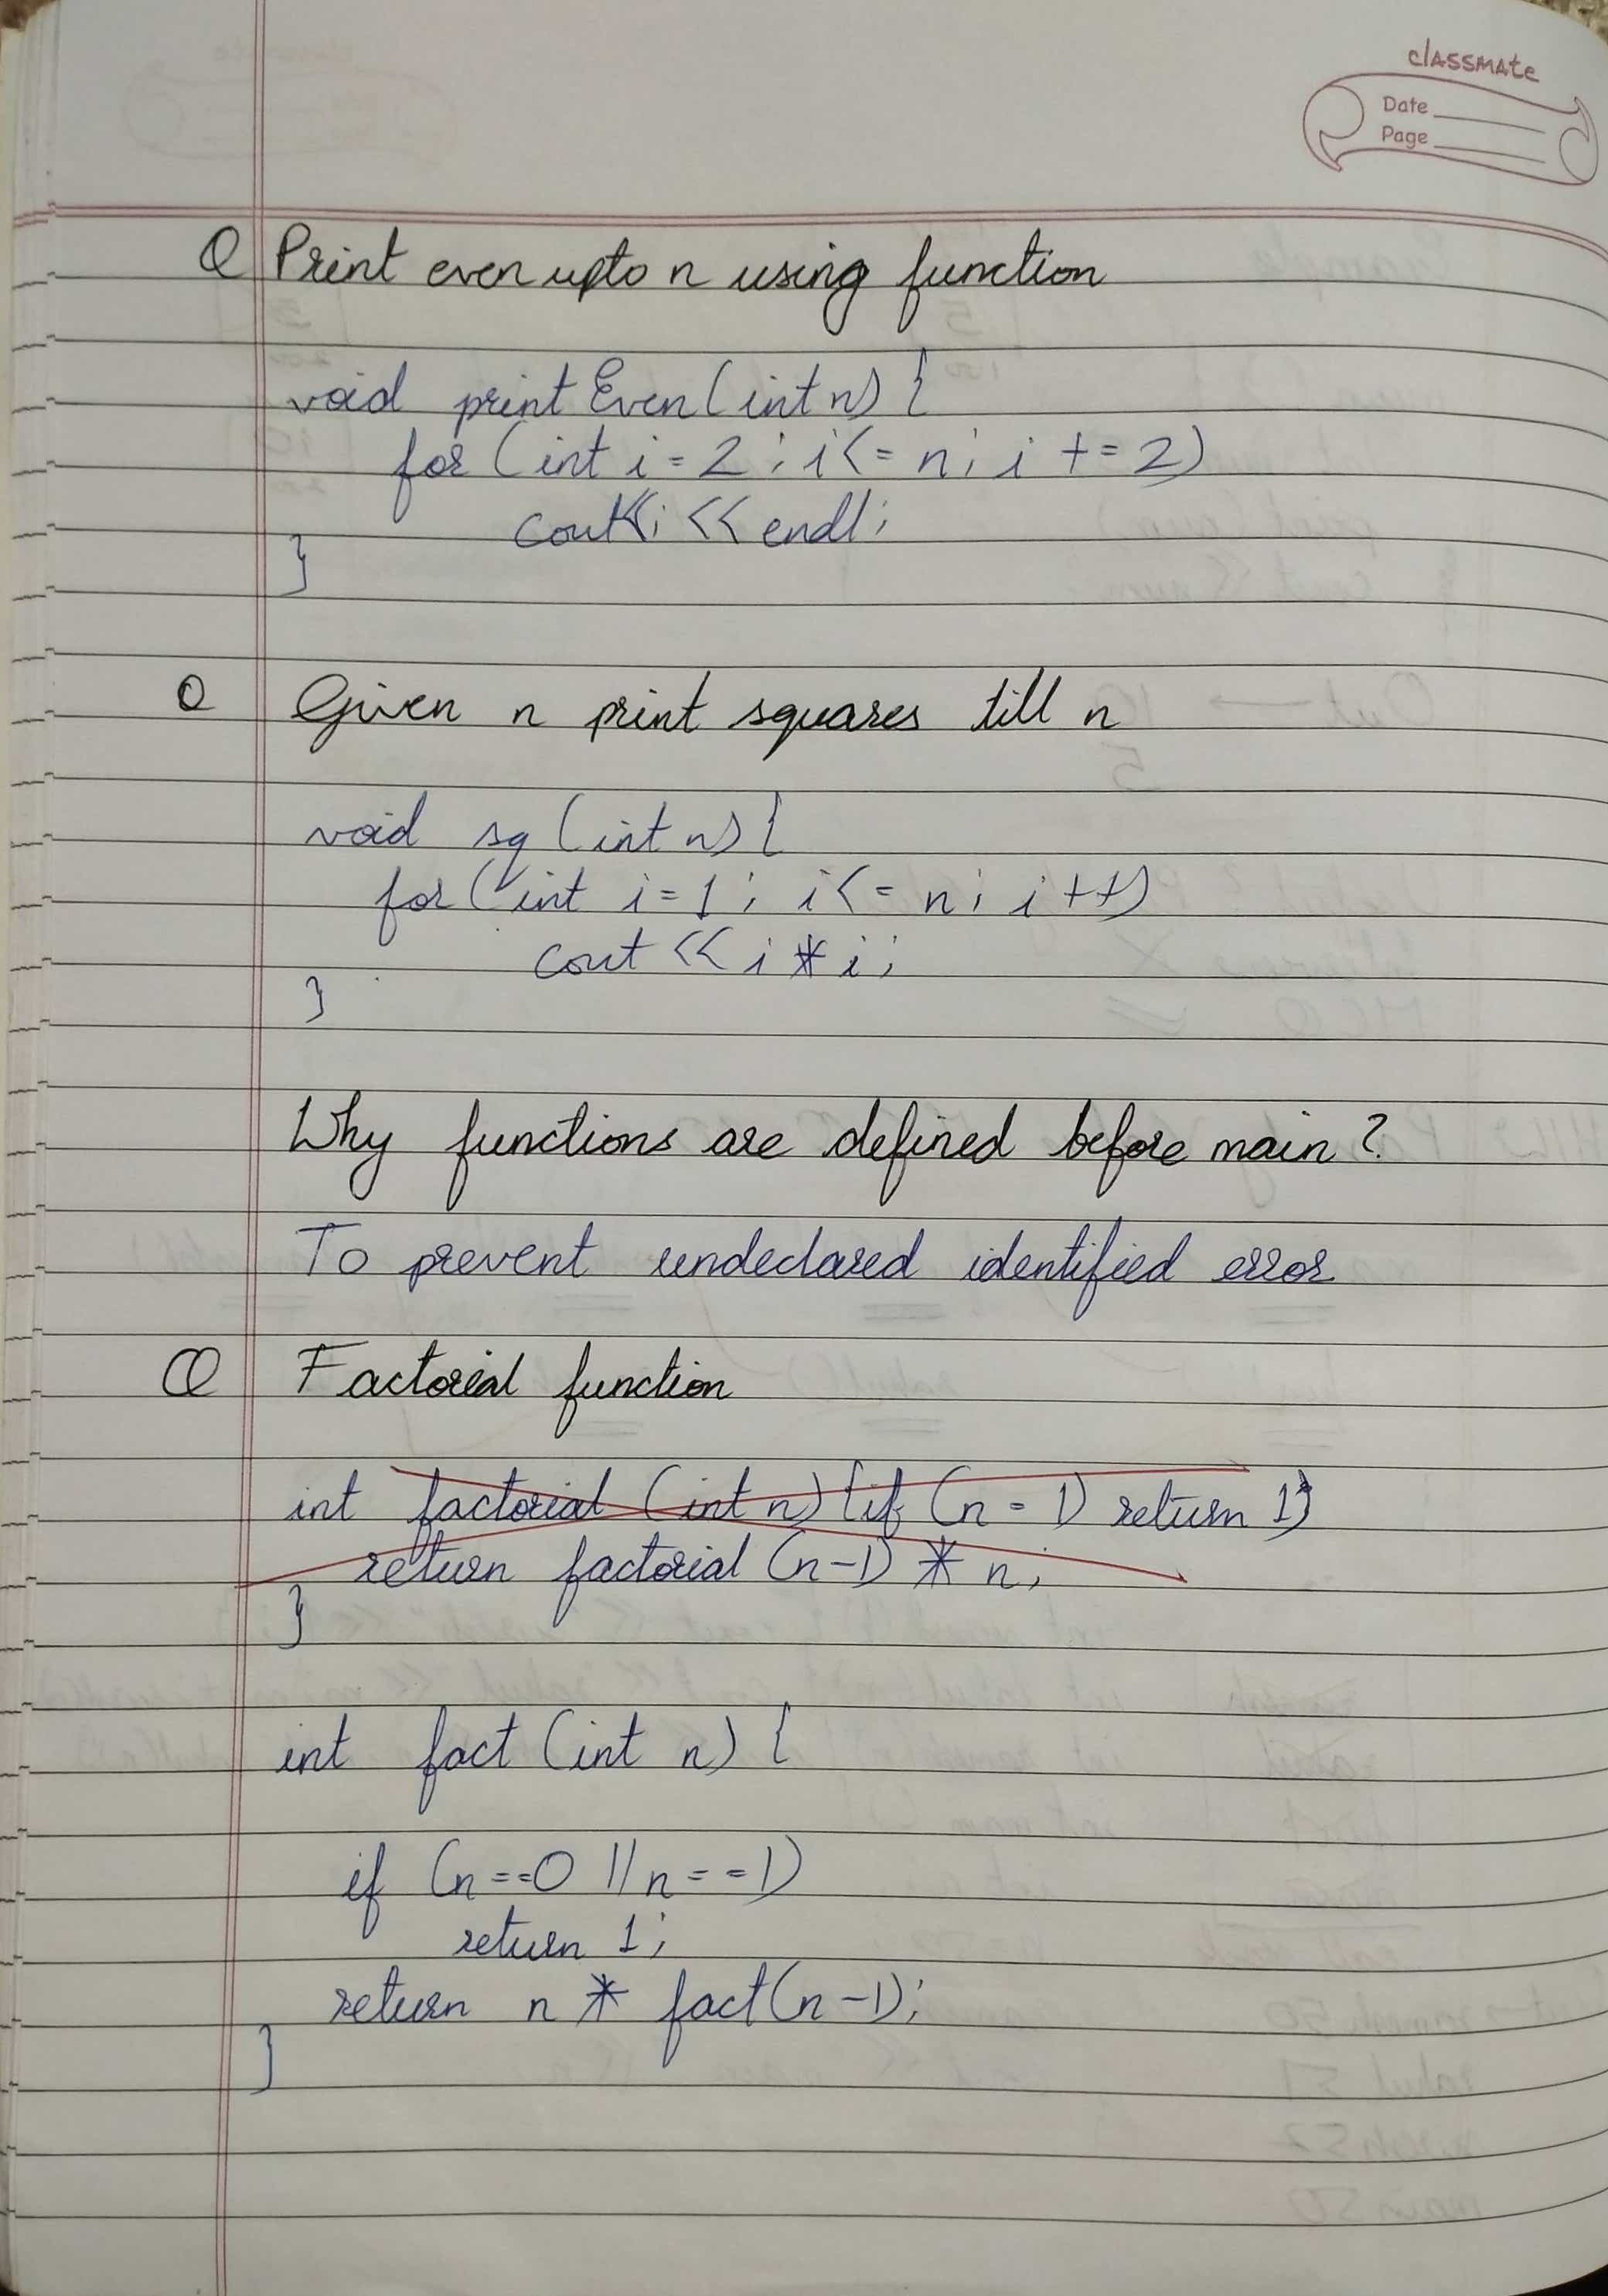 classmate
Date
Page
Q Print even upto n using function
void printEven(int n) {
for (int i = 2 ; i <= n ; i += 2)
cout<<i << endl;
}
Q Given n print squares till n
void sq (int n) {
for ( int i = 1 ; i <= n ; i ++)
cout << i * i ;
}
Why functions are defined before main ?
To prevent undeclared identified error
Q Factorial function
int factorial (int n) {if (n = 1) return 1}
return factorial (n-1) * n ;
}
int fact (int n) {
if (n==0 || n==1)
return 1 ;
return n * fact(n-1);
}